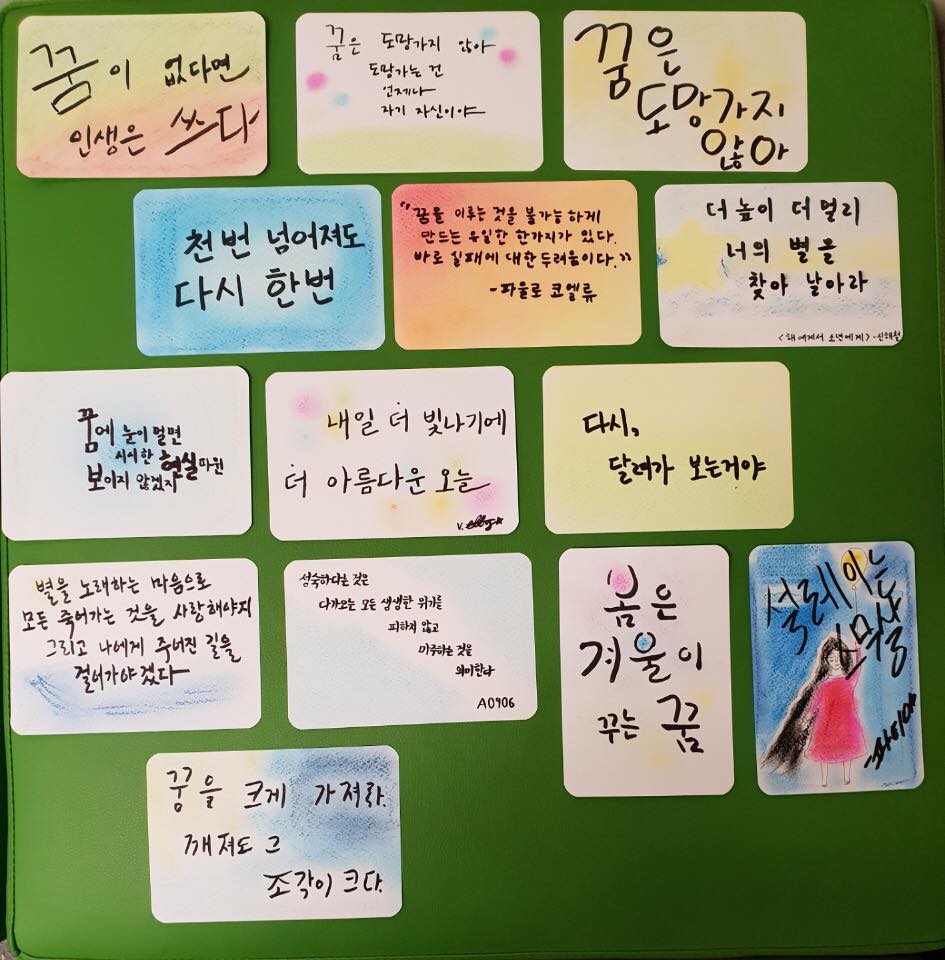 꿈이 없다면
인생은 쓰다
꿈은 도망가지 않아
도망가는 건
언제나
자기 자신이야
꿈은
도망가지
않아
천 번 넘어져도
다시 한번
"꿈을 이루는 것을 불가능하게
만드는 유일한 한가지가 있다.
바로 실패에 대한 두려움이다."
-파울로 코엘류
더 높이 더 멀리
너의 별을
찾아 날아라
<해에게서 소년에게>-신해철
꿈에 눈이 멀면
시시한 현실 따윈
보이지 않겠지
내일 더 빛나기에
더 아름다운 오늘
다시,
달려가 보는거야
별을 노래하는 마음으로
모든 죽어가는 것을 사랑해야지
그리고 나에게 주어진 길을
걸어가야겠다
성숙하다는 것은
다가오는 모든 생생한 위기를
피하지 않고
마주하는 것을
의미한다
A0906
봄은
겨울이
꾸는 꿈
설레이는
꿈을 크게 가져라.
깨져도 그
조각이 크다.